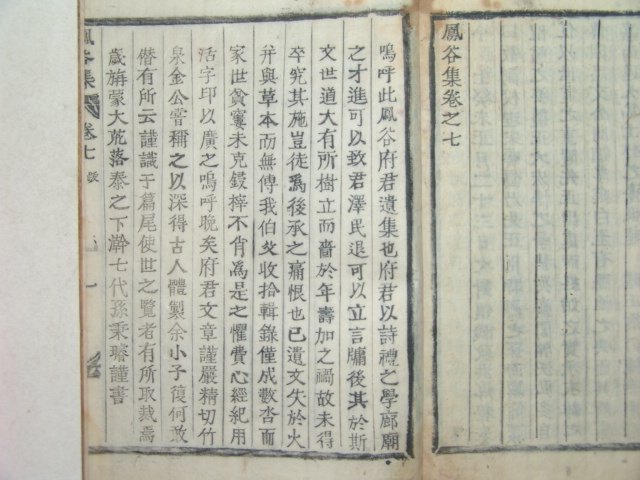 鳳谷集卷之七
嗚呼此鳳谷府君遺集也府君以詩禮之學廊廟
之才進可以致君澤民退可以立言牖後其於斯
文世道大有所樹立而嗇於年壽加之禍故未得
卒究其施豈徒爲後承之痛恨也已遺文失於火
幷與草本而無傳我伯父收拾輯錄僅成數沓而
家世貧窶未克鋟梓不肖爲是之懼費心經紀用
活字印以廣之嗚呼晩矣府君文章謹嚴精切竹
泉金公嘗稱之以深得古人體製余小子復何敢
僭有所云謹識于篇尾使世之覽者有所取裁焉
歲旃蒙大荒落泰之下澣七代孫秉璿謹書
鳳谷集 卷七 跋 一